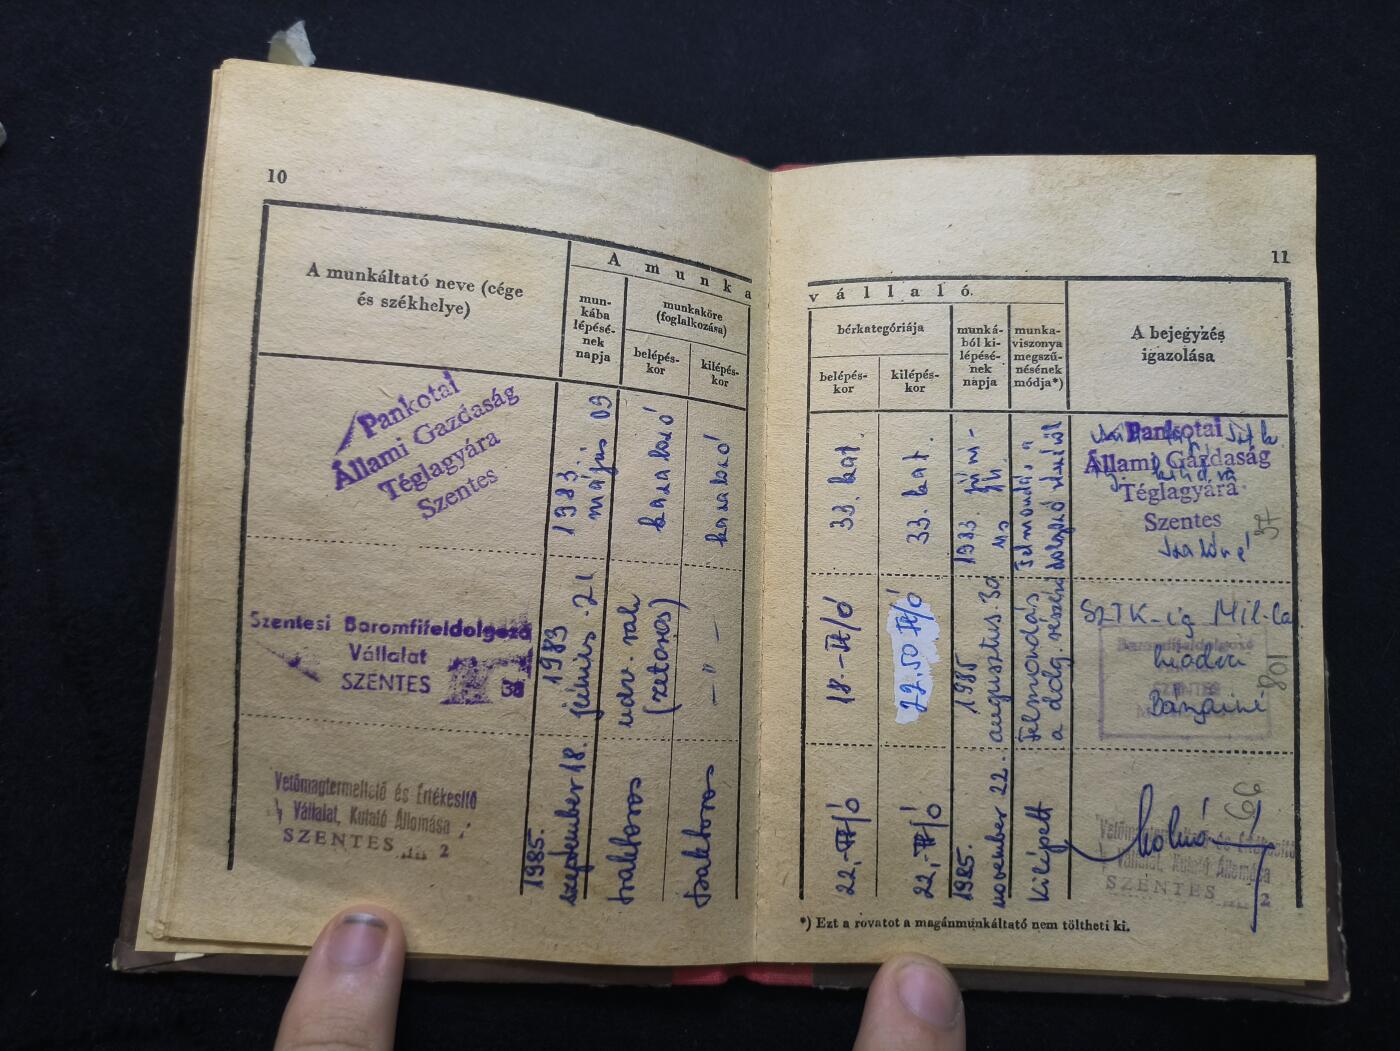 10
A munkáltató neve (cége
és székhelye)
A munka
mun-
kába
lépésé-
nek
napja
munkaköre
(foglalkozása)
belépés-
kor
kilépés-
kor
Pankotai
Állami Gazdaság
Téglagyára
Szentes
1983.
május 09
kazalozó
kazalozó
Szentesi Baromfifeldolgozó
Vállalat
SZENTES
38
1983
június 21
udv. rak
(zetoros)
– " –
Vetőmagtermeltető és Értékesítő
Vállalat, Kutató Állomása
SZENTES 2
1985.
szeptember 18.
traktoros
traktoros
11
vállaló.
bérkategóriája
belépés-
kor
kilépés-
kor
munká-
ból ki-
lépésé-
nek
napja
munka-
viszonya
megszű-
nésének
módja*)
A bejegyzés
igazolása
33. kat.
33. kat.
1983.
Felmondás a
dolgozó részéről
Pankotai
Állami Gazdaság
Téglagyára
Szentes
18.-Ft/ó
22,50 Ft/ó
1985
augusztus 30
Felmondás
a dolg. részéről
SZTK-ig
kiadva
Baromfifeldolgozó
SZENTES
801
22,-Ft/ó
22,-Ft/ó
1985.
november 22.
Kilépett
66
Vetőmagtermeltető és Értékesítő
Vállalat, Kutató Állomása
SZENTES 2
*) Ezt a rovatot a magánmunkáltató nem töltheti ki.